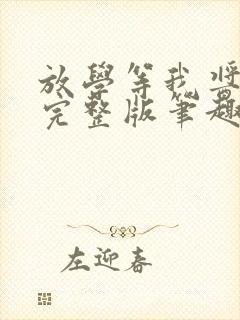 放學等我將
完整版筆趣
左迎春